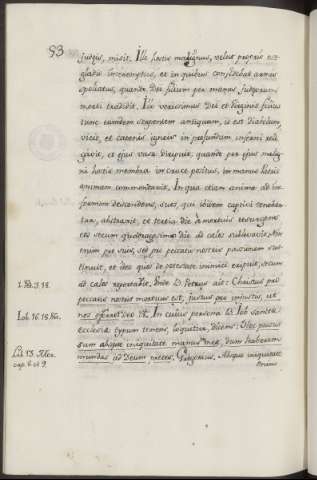 83
Judeis, misit. Ille hostis malignus, velut proprio
gladio interemptus, et in quibus confidebat armis
spoliatus, quando Dei filium per manus Judeorum
morti tradidit. Ille verissimus Dei et Virginis filius
tunc eumdem serpentem antiquum, id est diabolum,
vicit, et catenis igneis in profundum inferni reli-
gavit, et ejus vasa diripuit, quando per ejus malig-
ni hostis membra in cruce positus, in manus Patris
animam commendavit. In qua etiam anima ad in-
fernum descendens, suos, qui ibidem captivi teneban-
tur, abstraxit, et tertia die a mortuis resurgens
eos secum quadragesimo die ad celos sublevavit.
enim pro suis, sed pro peccatis nostris passionem sus-
tinuit, et deo quos de potestate inimici eripuit, secum
ad celos reportavit. Unde B. Petrus ait: Christus pro
1. Pet. 3. 18.
peccatis nostris mortuus est, justus pro injustis, ut
nos offerret Deo. In cujus persona B. Job sancte
Job. 16. 18.
ecclesie typum tenens, loquitur, dicens: Hec passus
sum absque iniquitate manus mee, dum haberem
Lib. 13.
cap. 8 et 9
mundas ad Deum preces. Gregorius. Absque iniquitate